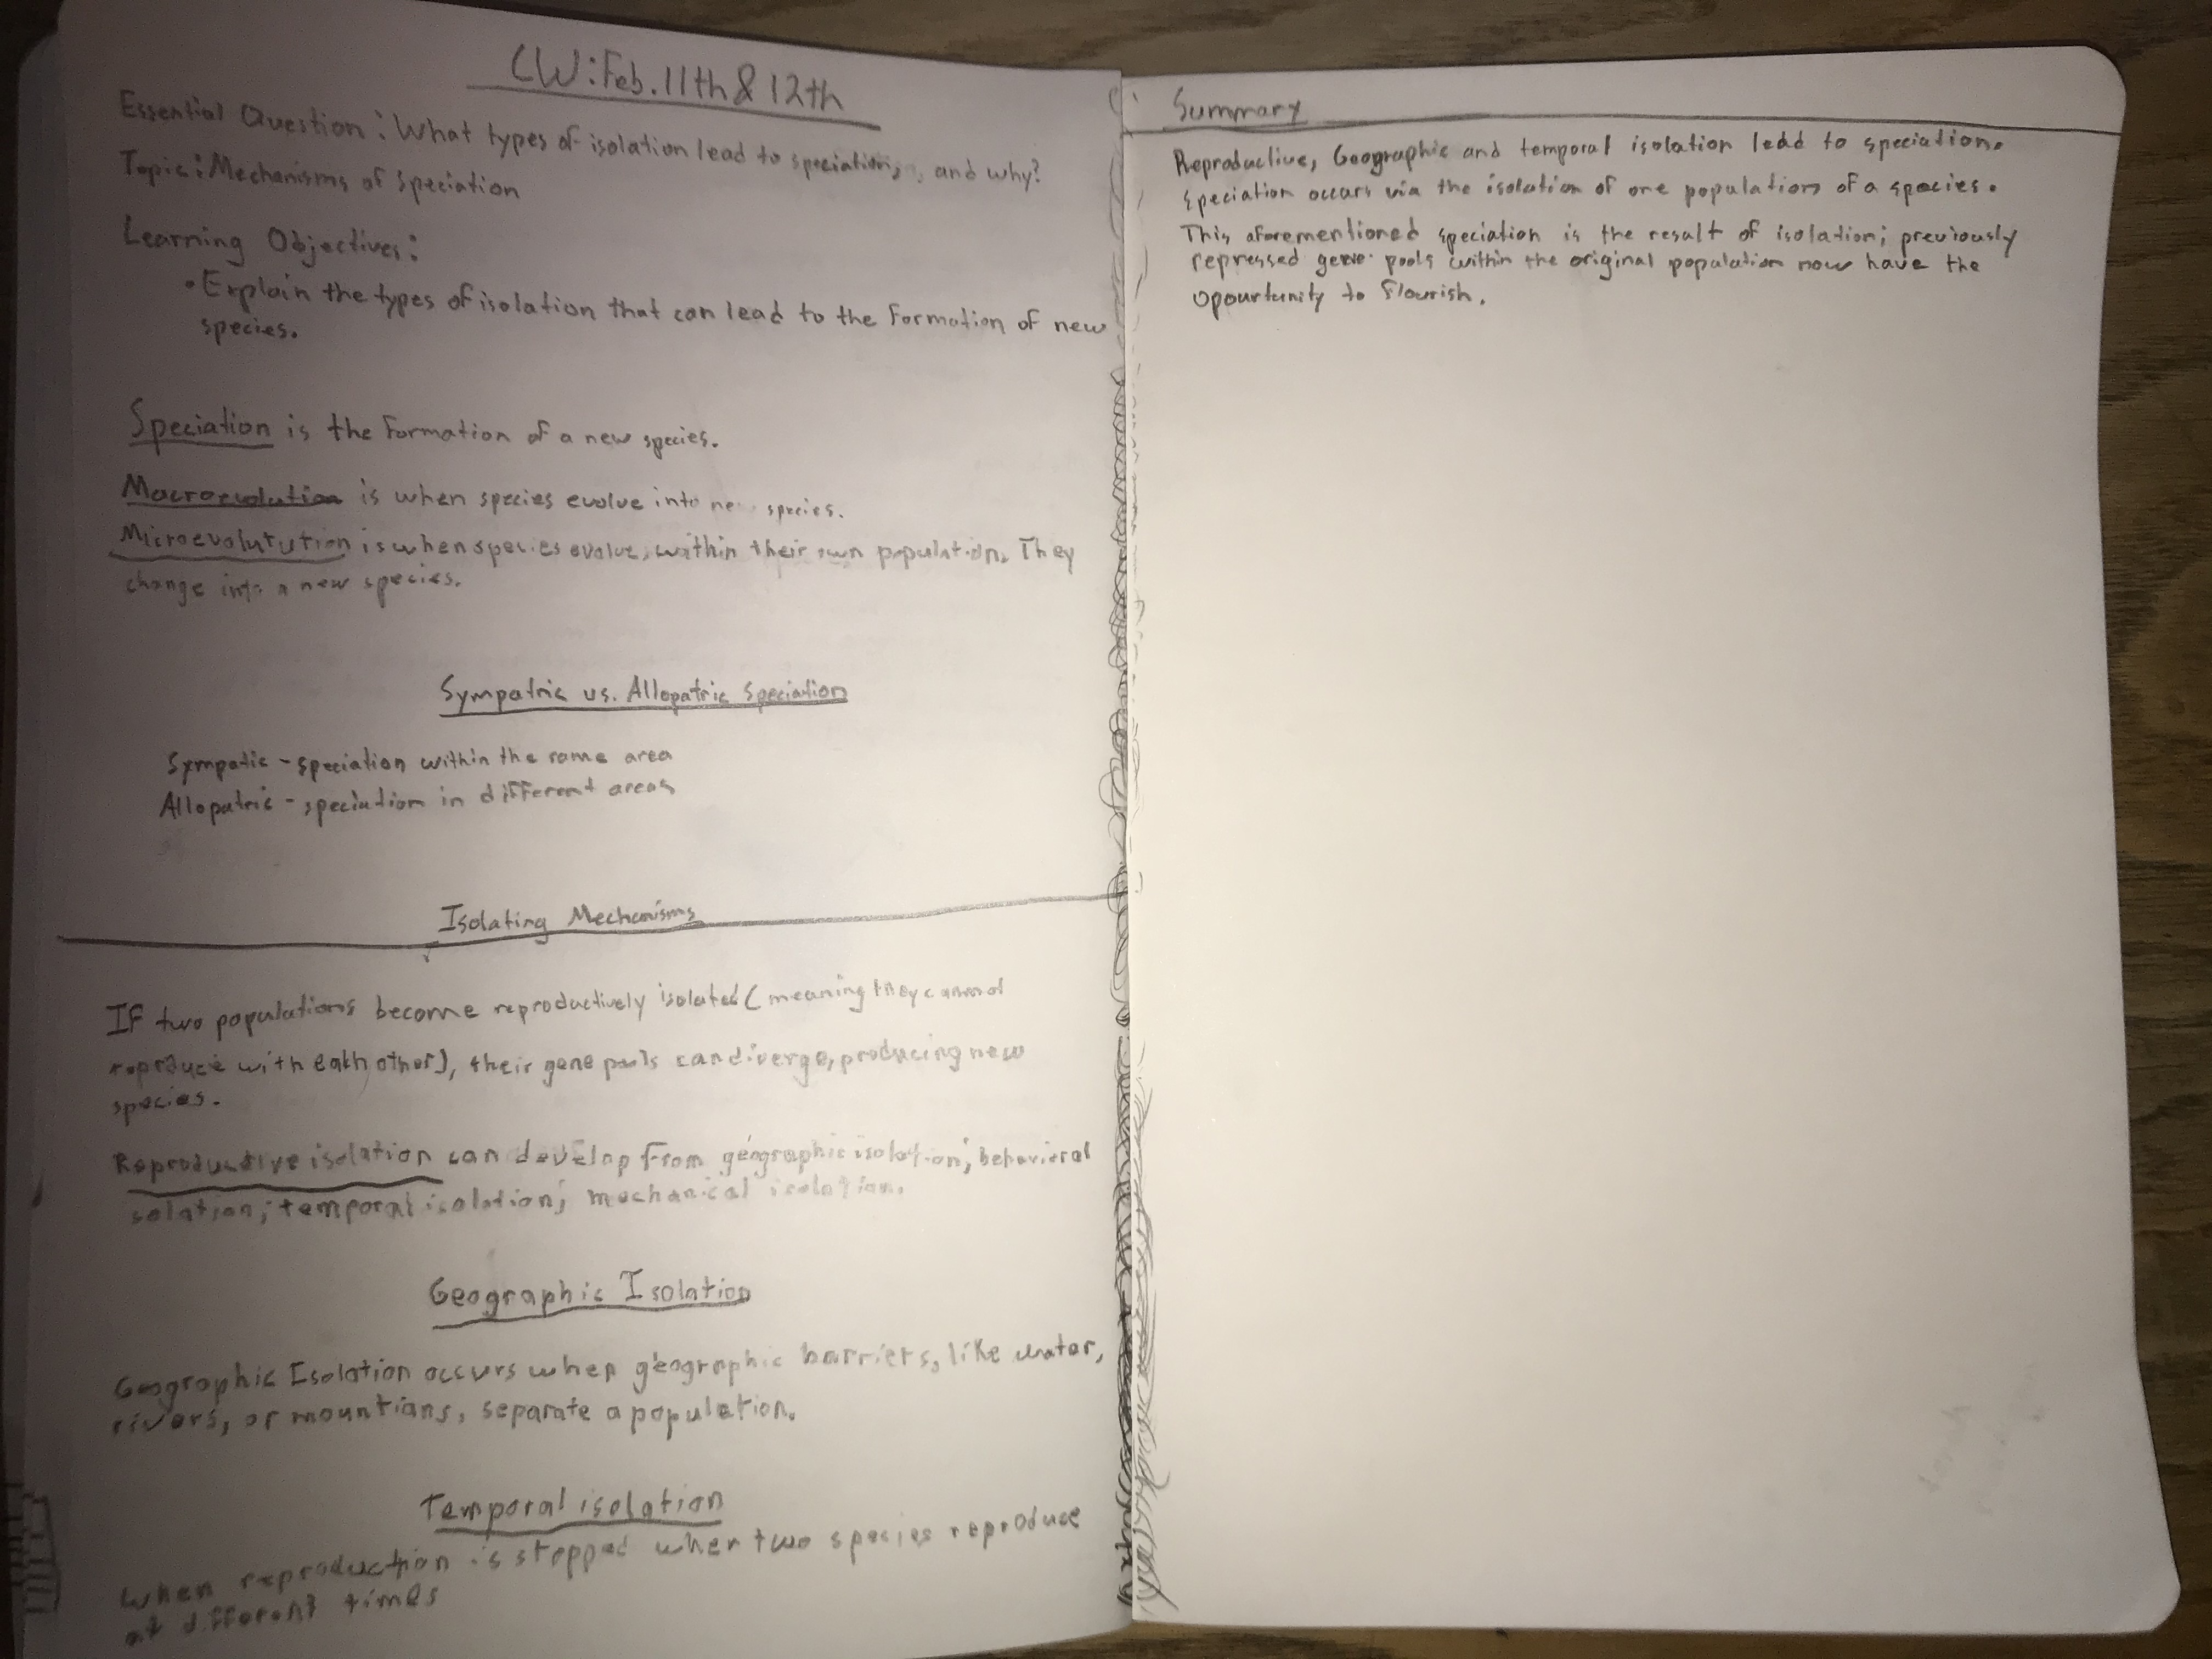 CW: Feb. 11th & 12th
Essential Question: What types of isolation lead to speciation, and why?
Topic: Mechanisms of speciation
Learning Objectives:
• Explain the types of isolation that can lead to the formation of new
species.
Speciation is the formation of a new species.
Macroevolution is when species evolve into new species.
Microevolutution is when species evolve within their own population. They
change into a new species.
Sympatric vs. Allopatric Speciation
Sympatic - speciation within the same area
Allopatric - speciation in different areas
Isolating Mechanisms
If two populations become reproductively isolated (meaning they cannot
reproduce with eath other), their gene pools can diverge, producing new
species.
Reproductive isolation can develop from geographic isolation; behavioral
isolation; temporal isolation; mechanical isolation.
Geographic Isolation
Geographic Isolation occurs when geographic barriers, like water,
rivers, or mountians, separate a population.
Temporal isolation
When reproduction is stopped when two species reproduce
at different times
Summary
Reproductive, Geographic and temporal isolation lead to speciation.
speciation occurs via the isolation of one population of a species.
This aforementioned speciation is the result of isolation; previously
repressed gene pools within the original population now have the
opourtunity to flourish.